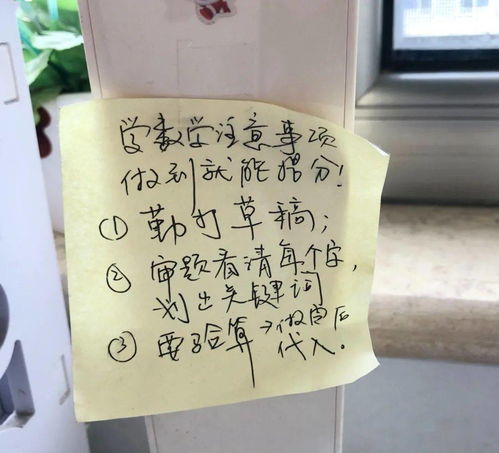 学数学注意事项
做到就能提分！
① 勤打草稿；
② 审题看清每个字，
划出关键词
③ 要验算→做完后
代入。